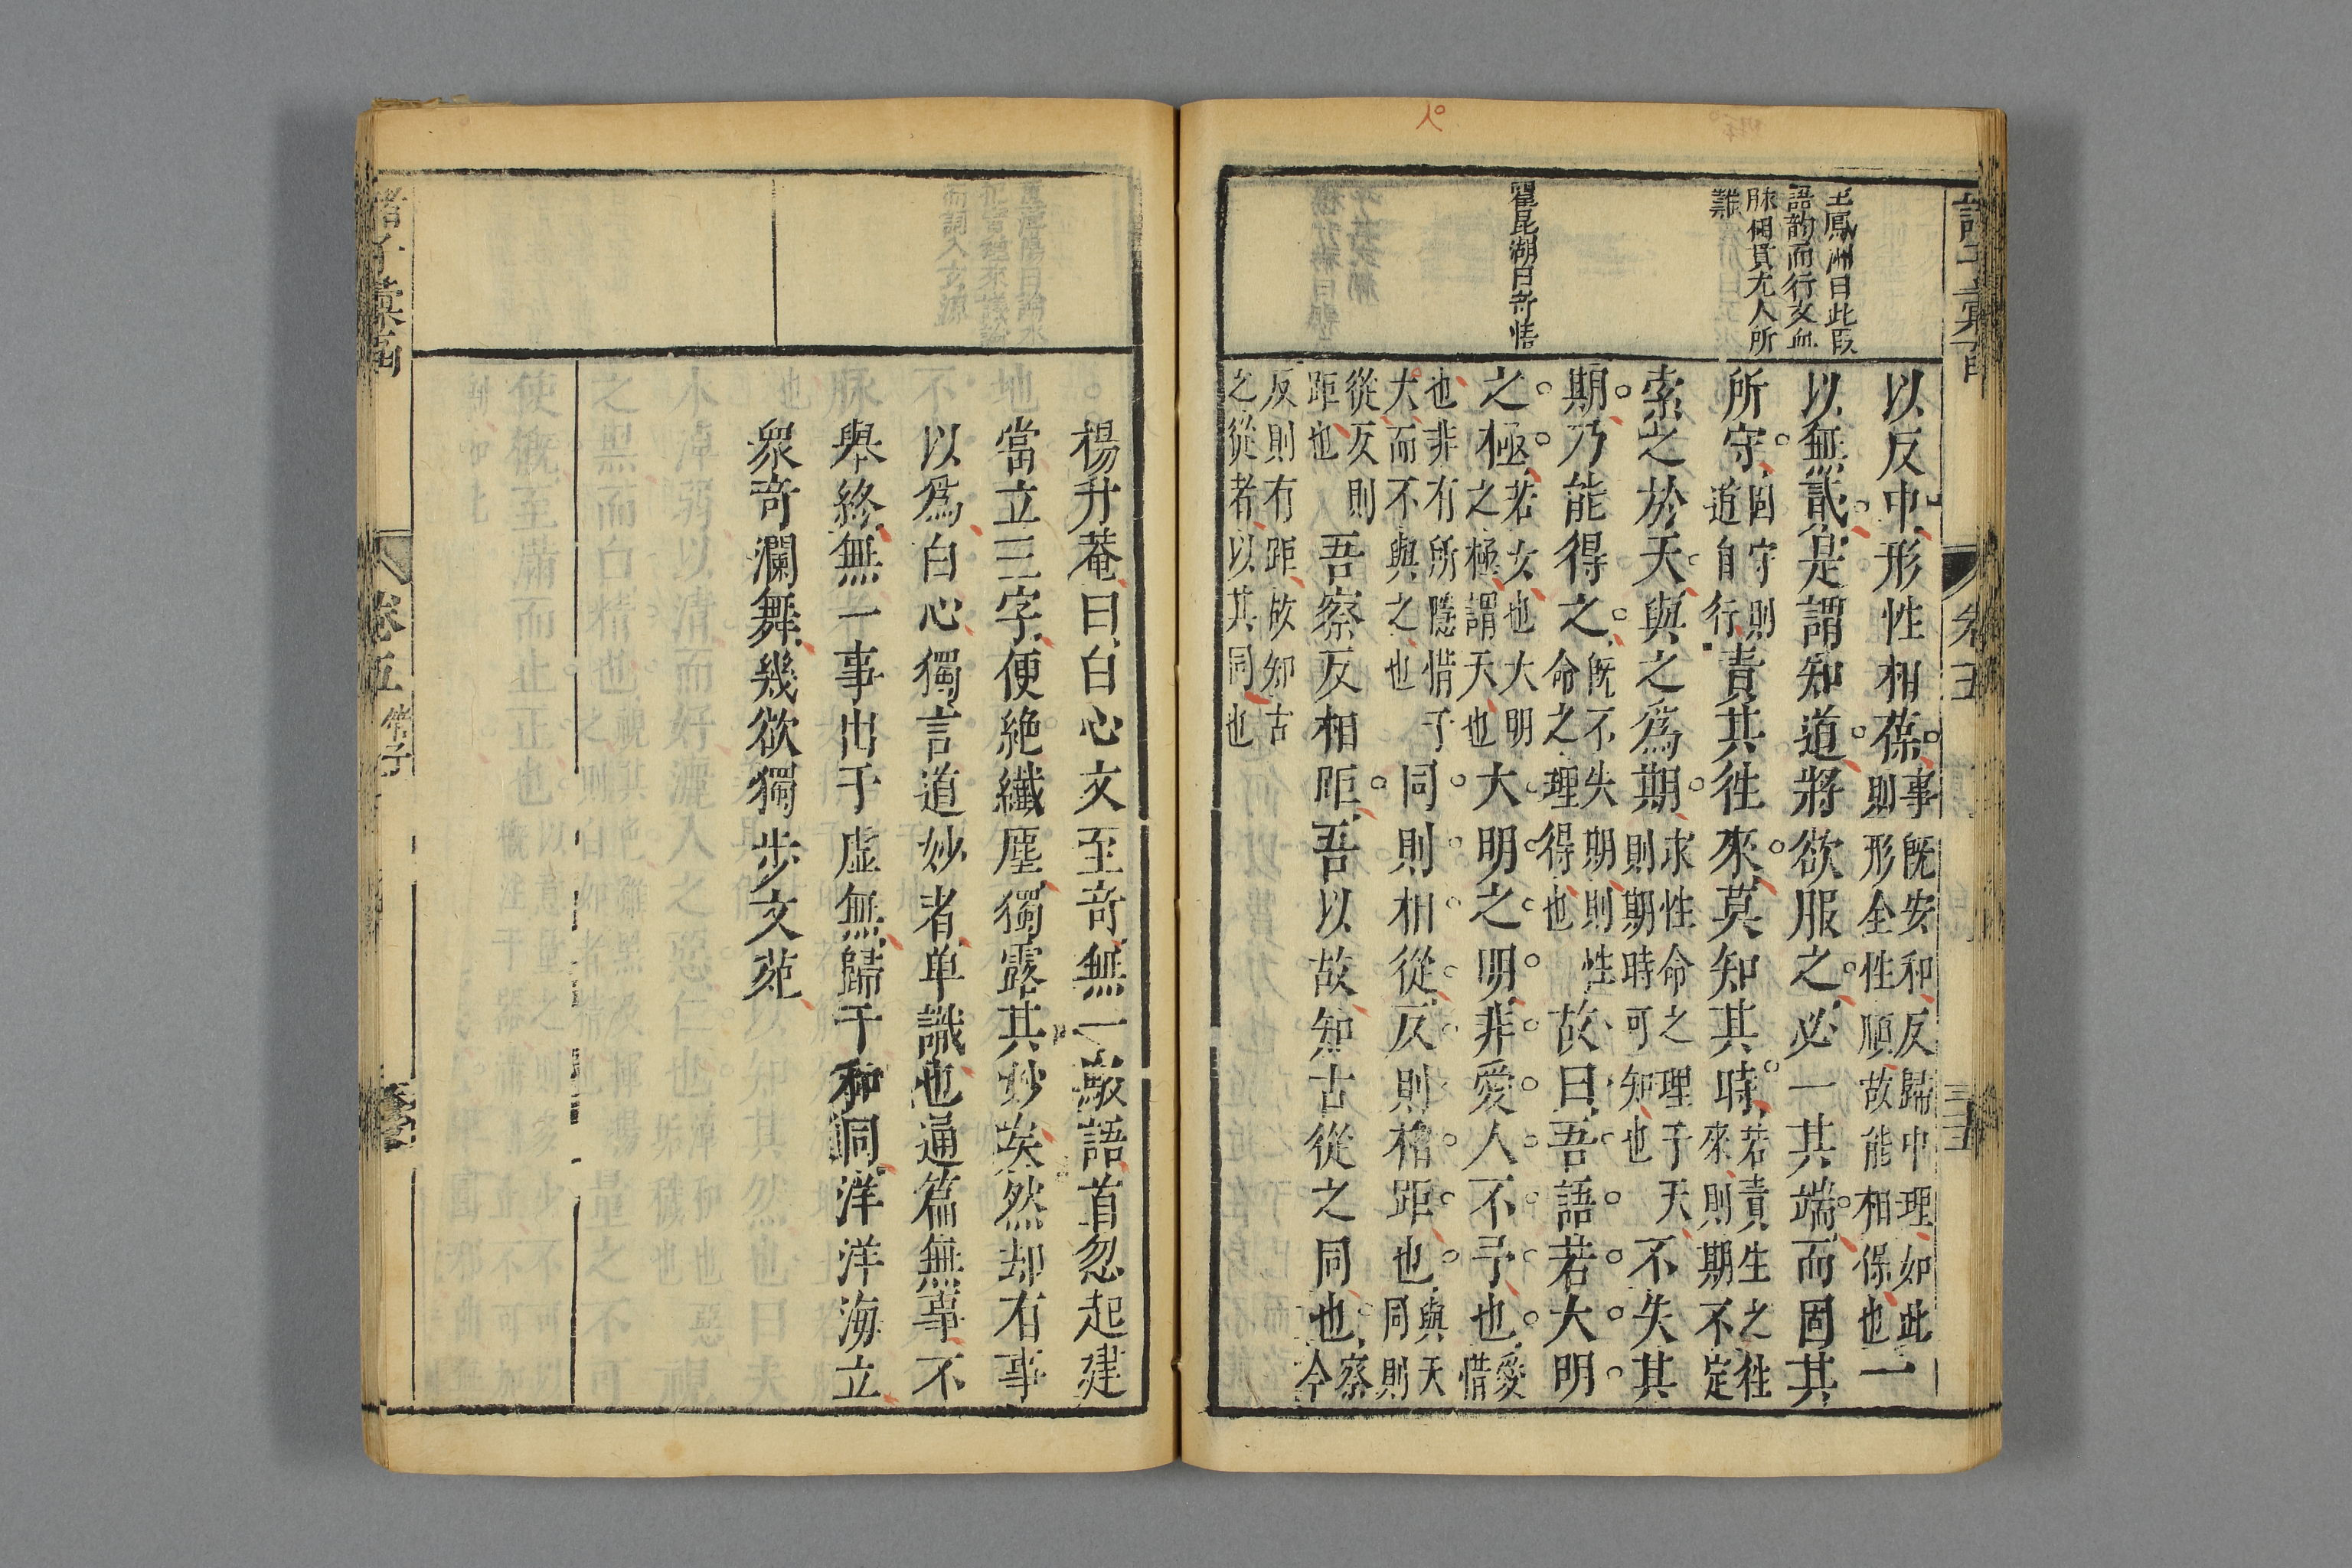 王鳳洲曰此叚
語韵而行文血
脉佃貫尢人所
難
瞿昆湖曰竒悟
以反中形性相葆事既安和反歸中理如此則形全性順故能相保也一
以無貳是謂知道將欲服之必一其端而固其
所守固守則道自行責其徃來莫知其時若責生之徃來則期不定
索之於天與之爲期求性命之理于天則期時可知也不失其
期乃能得之既不失期則性命之理得也故曰吾語若大明
之極若女也大明之極謂天也大明之明非愛人不予也愛惜
也非有所隱惜了大而不與之也同則相從反則相距也與天同則
從反則距也吾察反相距吾以故知古從之同也察今
反則有距故知古之從者以其同也
楊升菴曰白心文至竒無一敲語首忽起建
當立三字便絶纖塵獨露其妙矣然却有事
以爲白心獨言道妙者单識也通篇無事不
舉終無一事出于虚無歸于和洞洋洋海立
衆竒瀾舞幾欲獨步文苑
卷五